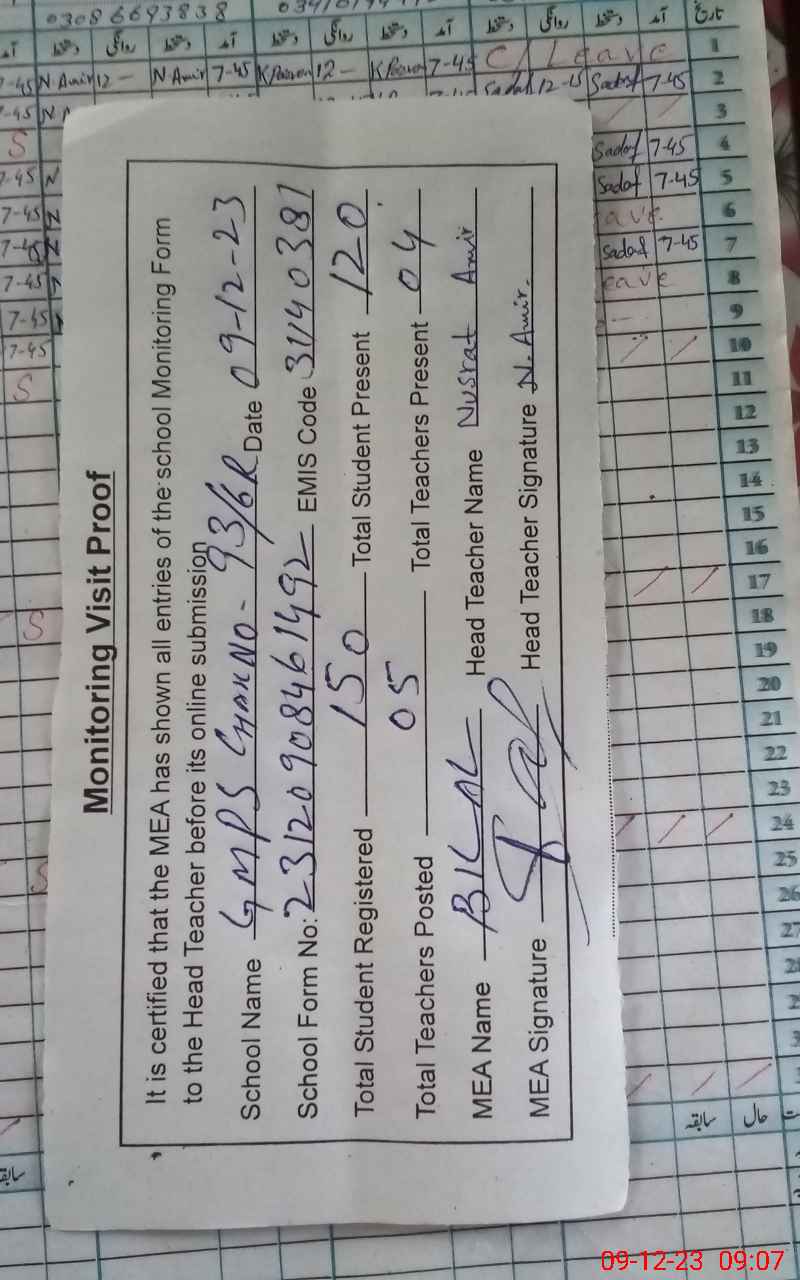 Monitoring Visit Proof
It is certified that the MEA has shown all entries of the school Monitoring Form
to the Head Teacher before its online submission
School Name GMPS CHAK NO- 93/6R Date 09-12-23
School Form No: 231209084661492 EMIS Code 31140381
Total Student Registered 150 Total Student Present 120
Total Teachers Posted 05 Total Teachers Present 04
MEA Name BILAL Head Teacher Name Nusrat Amir
MEA Signature Head Teacher Signature N. Amir.
03086693838
تاریخ آمد دستخط روانگی دستخط آمد دستخط روانگی دستخط آمد
1 C/Leave
2 7-45 Sadaf 12-15 Sadaf 7-45 K Parveen 12- K Parveen 7-45 N Amir 12- N Amir 7-45
3
4 7-45 Sadaf S
5 7-45 Sadaf 7-45 N
6 ave 7-45 N
7 7-45 Sadaf 7-45 N
8 eave 7-45
9 7-45
10 7-45
11 S
12
13
14
15
16
17
18 S
19
20
21
22
23
24
25 S
26
27
حال سابقہ
سابقہ
09-12-23 09:07